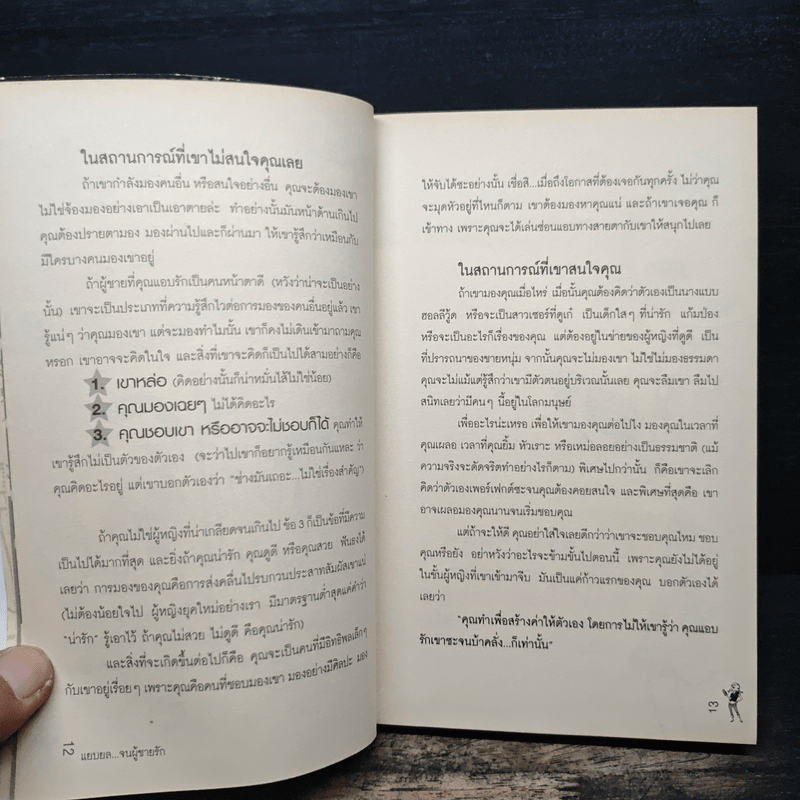 ในสถานการณ์ที่เขาไม่สนใจคุณเลย
ถ้าเขากำลังมองคนอื่น หรือสนใจอย่างอื่น คุณจะต้องมองเขา
ไม่ใช่จ้องมองอย่างเอาเป็นเอาตายล่ะ ทำอย่างนั้นมันหน้าด้านเกินไป
คุณต้องปรายตามอง มองผ่านไปและก็ผ่านมา ให้เขารู้สึกว่าเหมือนกับ
มีใครบางคนมองเขาอยู่
ถ้าผู้ชายที่คุณแอบรักเป็นคนหน้าตาดี (หวังว่าน่าจะเป็นอย่าง
นั้น) เขาจะเป็นประเภทที่ความรู้สึกไวต่อการมองของคนอื่นอยู่แล้ว เขา
รู้แน่ๆ ว่าคุณมองเขา แต่จะมองทำไมนั้น เขาก็คงไม่เดินเข้ามาถามคุณ
หรอก เขาอาจจะคิดในใจ และสิ่งที่เขาจะคิดก็เป็นไปได้สามอย่างก็คือ
1. เขาหล่อ (คิดอย่างนั้นก็น่าหมั่นไส้ไม่ใช่น้อย)
2. คุณมองเฉยๆ ไม่ได้คิดอะไร
3. คุณชอบเขา หรืออาจจะไม่ชอบก็ได้ คุณทำให้
เขารู้สึกไม่เป็นตัวของตัวเอง (จะว่าไปเขาก็อยากรู้เหมือนกันแหละ ว่า
คุณคิดอะไรอยู่ แต่เขาบอกตัวเองว่า "ช่างมันเถอะ...ไม่ใช่เรื่องสำคัญ")
ถ้าคุณไม่ใช่ผู้หญิงที่น่าเกลียดจนเกินไป ข้อ 3 ก็เป็นข้อที่มีความ
เป็นไปได้มากที่สุด และยิ่งถ้าคุณน่ารัก คุณดูดี หรือคุณสวย ฟันธงได้
เลยว่า การมองของคุณคือการส่งคลื่นไปรบกวนประสาทสัมผัสเขาแน่
(ไม่ต้องน้อยใจไป ผู้หญิงยุคใหม่อย่างเรา มีมาตรฐานต่ำสุดแค่คำว่า
"น่ารัก" รู้เอาไว้ ถ้าคุณไม่สวย ไม่ดูดี คือคุณน่ารัก)
และสิ่งที่จะเกิดขึ้นต่อไปก็คือ คุณจะเป็นคนที่มีอิทธิพลเล็กๆ
กับเขาอยู่เรื่อยๆ เพราะคุณคือคนที่ชอบมองเขา มองอย่างมีศิลปะ มอง
12 แยบยล...จนผู้ชายรัก
ให้จับได้ซะอย่างนั้น เชื่อสิ...เมื่อถึงโอกาสที่ต้องเจอกันทุกครั้ง ไม่ว่าคุณ
จะมุดหัวอยู่ที่ไหนก็ตาม เขาต้องมองหาคุณแน่ และถ้าเขาเจอคุณ ก็
เข้าทาง เพราะคุณจะได้เล่นซ่อนแอบทางสายตากับเขาให้สนุกไปเลย
ในสถานการณ์ที่เขาสนใจคุณ
ถ้าเขามองคุณเมื่อไหร่ เมื่อนั้นคุณต้องคิดว่าตัวเองเป็นนางแบบ
ฮอลลีวู้ด หรือจะเป็นสาวเซอร์ที่ดูเก๋ เป็นเด็กใสๆ ที่น่ารัก แก้มป่อง
หรือจะเป็นอะไรก็เรื่องของคุณ แต่ต้องอยู่ในข่ายของผู้หญิงที่ดูดี เป็น
ที่ปรารถนาของชายหนุ่ม จากนั้นคุณจะไม่มองเขา ไม่ใช่ไม่มองธรรมดา
คุณจะไม่แม้แต่รู้สึกว่าเขามีตัวตนอยู่บริเวณนั้นเลย คุณจะลืมเขา ลืมไป
สนิทเลยว่ามีคนๆ นี้อยู่ในโลกมนุษย์
เพื่ออะไรน่ะเหรอ เพื่อให้เขามองคุณต่อไปไง มองคุณในเวลาที่
คุณเผลอ เวลาที่คุณยิ้ม หัวเราะ หรือเหม่อลอยอย่างเป็นธรรมชาติ (แม้
ความจริงจะดัดจริตทำอย่างไรก็ตาม) พิเศษไปกว่านั้น ก็คือเขาจะเลิก
คิดว่าตัวเองเพอร์เฟกต์ซะจนคุณต้องคอยสนใจ และพิเศษที่สุดคือ เขา
อาจเผลอมองคุณนานจนเริ่มชอบคุณ
แต่ถ้าจะให้ดี คุณอย่าใส่ใจเลยดีกว่าว่าเขาจะชอบคุณไหม ชอบ
คุณหรือยัง อย่าหวังว่าอะไรจะข้ามขั้นไปตอนนี้ เพราะคุณยังไม่ได้อยู่
ในขั้นผู้หญิงที่เขาเข้ามาจีบ มันเป็นแค่ก้าวแรกของคุณ บอกตัวเองได้
เลยว่า
"คุณทำเพื่อสร้างค่าให้ตัวเอง โดยการไม่ให้เขารู้ว่า คุณแอบ
รักเขาซะจนบ้าคลั่ง...ก็เท่านั้น"
13